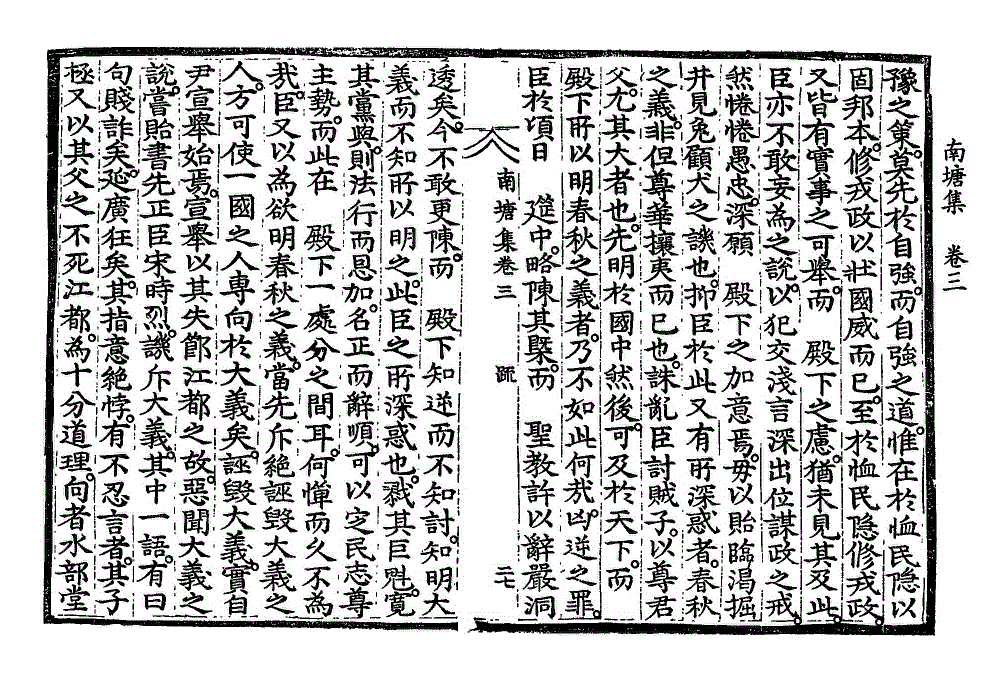 南塘集 卷三
豫之策。莫先於自強。而自強之道。惟在於恤民隱以
固邦本。修戎政以壯國威而已。至於恤民隱修戎政。
又皆有實事之可擧。而 殿下之慮。猶未見其及此。
臣亦不敢妄爲之說。以犯交淺言深出位謀政之戒。
然惓惓愚忠。深願 殿下之加意焉。毋以貽臨渴掘
井見兔顧犬之譏也。抑臣於此又有所深惑者。春秋
之義。非但尊華攘夷而已也。誅亂臣討賊子。以尊君
父。尤其大者也。先明於國中然後。可及於天下。而
殿下所以明春秋之義者。乃不如此何哉。凶逆之罪。
臣於頃日 筵中。略陳其槩。而 聖教許以辭嚴洞
南塘集卷三 疏 二七
透矣。今不敢更陳。而 殿下知逆而不知討。知明大
義而不知所以明之。此臣之所深惑也。戮其巨魁。寬
其黨與。則法行而恩加。名正而辭順。可以定民志尊
主勢。而此在 殿下一處分之間耳。何憚而久不爲
哉。臣又以爲欲明春秋之義。當先斥絶誣毁大義之
人。方可使一國之人專向於大義矣。誣毁大義。實自
尹宣擧始焉。宣擧以其失節江都之故。惡聞大義之
說。嘗貽書先正臣宋時烈。譏斥大義。其中一語。有曰
句賤詐矣。延廣狂矣。其指意絶悖。有不忍言者。其子
極又以其父之不死江都。爲十分道理。向者水部堂